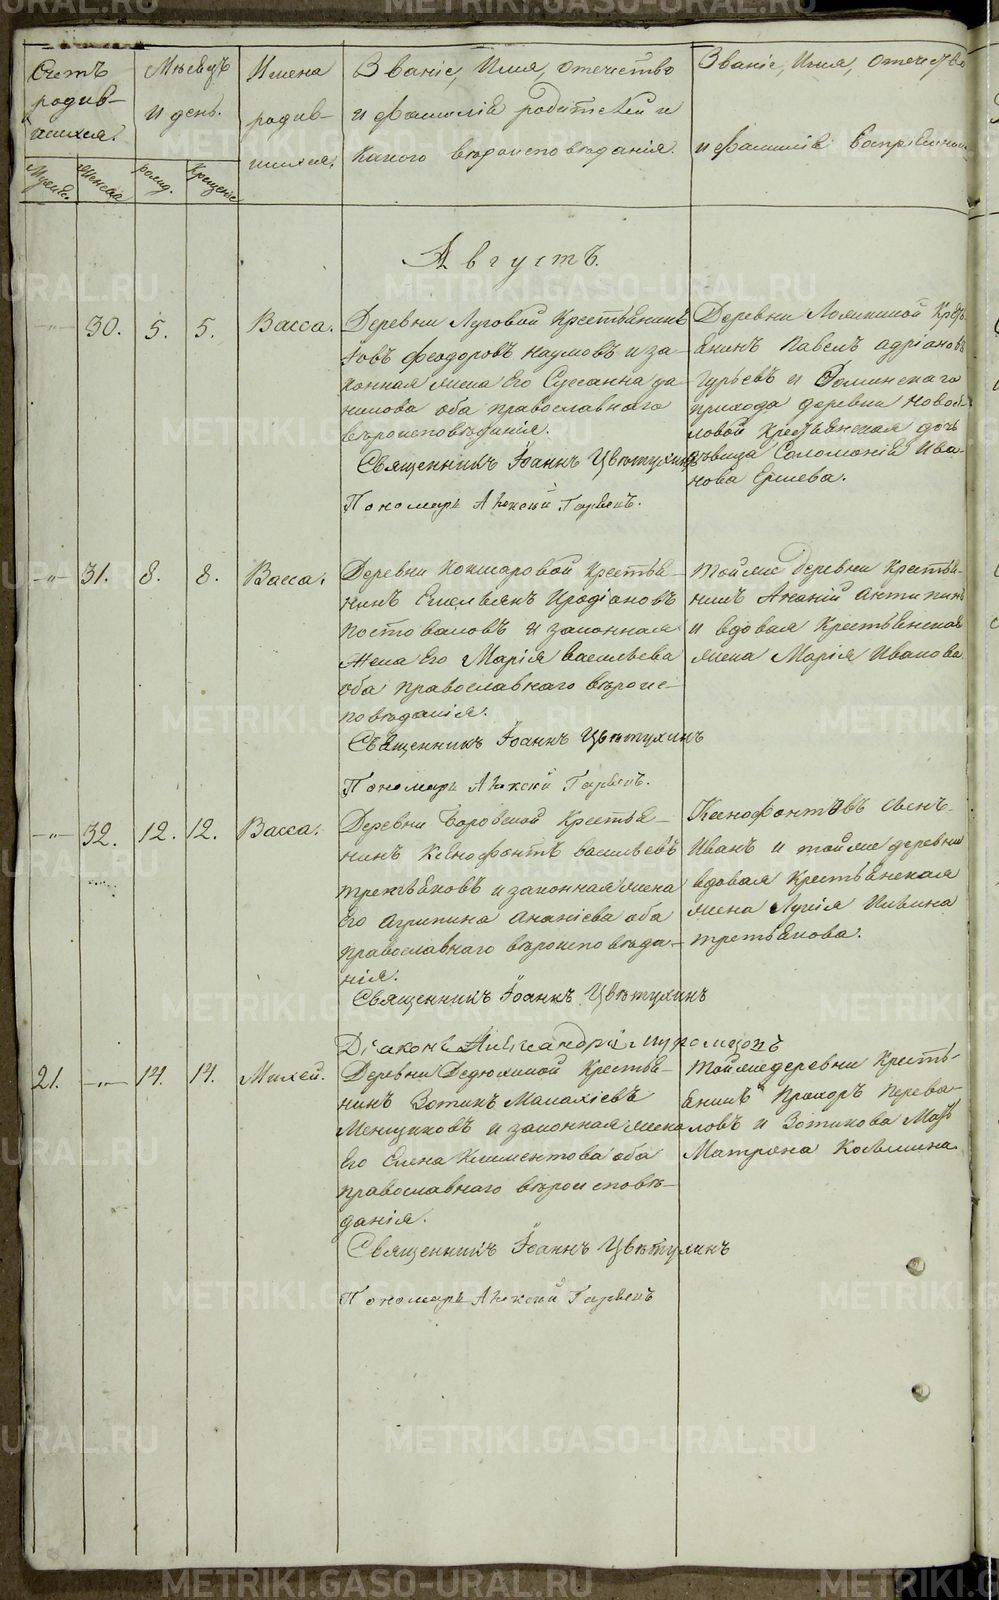 Счетъ родив-шихся.
Мѣсяцъ и день.
Имена родив-шихся.
Званіе, Имя, отечество
и фамилія родителей и
какого вѣроисповѣданія.
Званіе, Имя, отечество
и фамилія воспріемник
Мужеска.
Женска
рожд.
Крещенія
Августъ.
-„- 30. 5. 5. Васса.
Деревни Луговой Крестьянинъ
Іовъ Феодоровъ Наумовъ и за-
конная жена Его Сусанна Да-
нилова оба православнаго
вѣроисповѣданія.
Священникъ Іоаннъ Цвѣтухинъ
Пономарь Алексѣй
Деревни Кресть-
янинъ Павелъ Адріановъ
Гурьевъ и
прихода деревни Новосе-
ловой Крестьянская дочь
дѣвица Соломонія Ива-
нова Ершева.
-„- 31. 8. 8. Васса.
Деревни Кокшаровой Крестья-
нинъ Емельянъ Иродіановъ
Постоваловъ и законная
Жена Его Марія Васильева
оба православнаго вѣроис-
повѣданія.
Священникъ Іоаннъ Цвѣтухинъ
Пономарь Алексѣй
Той же Деревни Крестья-
нинъ Ананій Антипинъ
и вдовая Крестьянская
жена Марія Иванова
-„- 32. 12. 12. Васса.
Деревни Боровской Крестья-
нинъ Ксенофонтъ Васильевъ
Третьяковъ и законная жена
Его Агрипина Ананіева оба
православнаго вѣроисповѣда-
нія.
Священникъ Іоаннъ Цвѣтухинъ
Діаконъ Александръ
Ксенофонтовъ сынъ
Иванъ и той же деревни
вдовая Крестьянская
жена Лукія Ильина
Третьякова.
21. -„- 14. 14. Михей.
Деревни Дедюхиной Крестья-
нинъ Зотикъ Малахіевъ
Меньшиковъ и законная жена
Его Елена Климентова оба
православнаго вѣроисповѣ-
данія.
Священникъ Іоаннъ Цвѣтухинъ
Пономарь Алексѣй
Той же деревни Кресть-
янинъ Прохоръ Перева-
ловъ и Зотикова Мать
Матрона Козьмина
METRIKI.GASO-URAL.RU